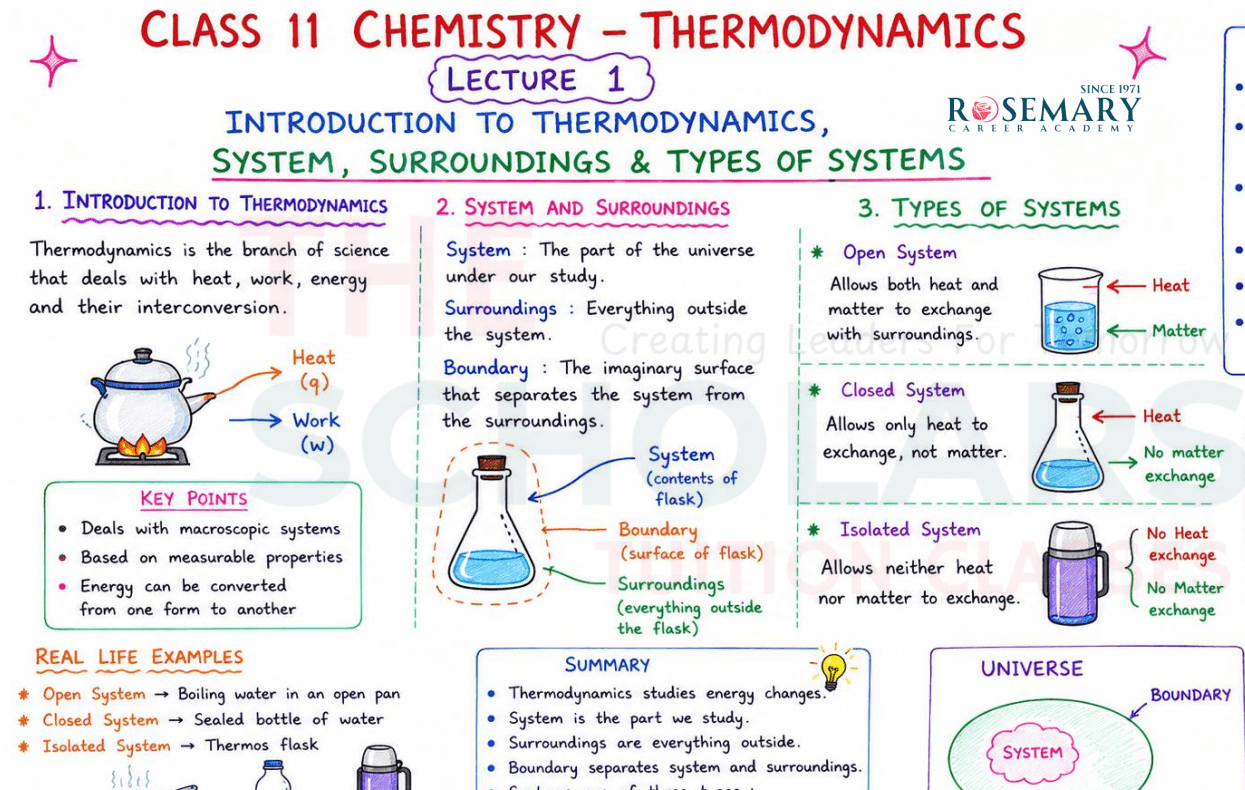 CLASS 11 CHEMISTRY – THERMODYNAMICS
LECTURE 1
SINCE 1971
ROSEMARY
CAREER ACADEMY
INTRODUCTION TO THERMODYNAMICS,
SYSTEM, SURROUNDINGS & TYPES OF SYSTEMS
1. INTRODUCTION TO THERMODYNAMICS
Thermodynamics is the branch of science
that deals with heat, work, energy
and their interconversion.
Heat
(q)
Work
(w)
KEY POINTS
• Deals with macroscopic systems
• Based on measurable properties
• Energy can be converted
from one form to another
2. SYSTEM AND SURROUNDINGS
System : The part of the universe
under our study.
Surroundings : Everything outside
the system.
Boundary : The imaginary surface
that separates the system from
the surroundings.
System
(contents of
flask)
Boundary
(surface of flask)
Surroundings
(everything outside
the flask)
3. TYPES OF SYSTEMS
* Open System
Allows both heat and
matter to exchange
with surroundings.
Heat
Matter
* Closed System
Allows only heat to
exchange, not matter.
Heat
No matter
exchange
* Isolated System
Allows neither heat
nor matter to exchange.
No Heat
exchange
No Matter
exchange
THE
Creating Leaders For Tomorrow
SCHOLARS
TUITION CLASSES
REAL LIFE EXAMPLES
* Open System → Boiling water in an open pan
* Closed System → Sealed bottle of water
* Isolated System → Thermos flask
SUMMARY
• Thermodynamics studies energy changes.
• System is the part we study.
• Surroundings are everything outside.
• Boundary separates system and surroundings.
UNIVERSE
BOUNDARY
SYSTEM